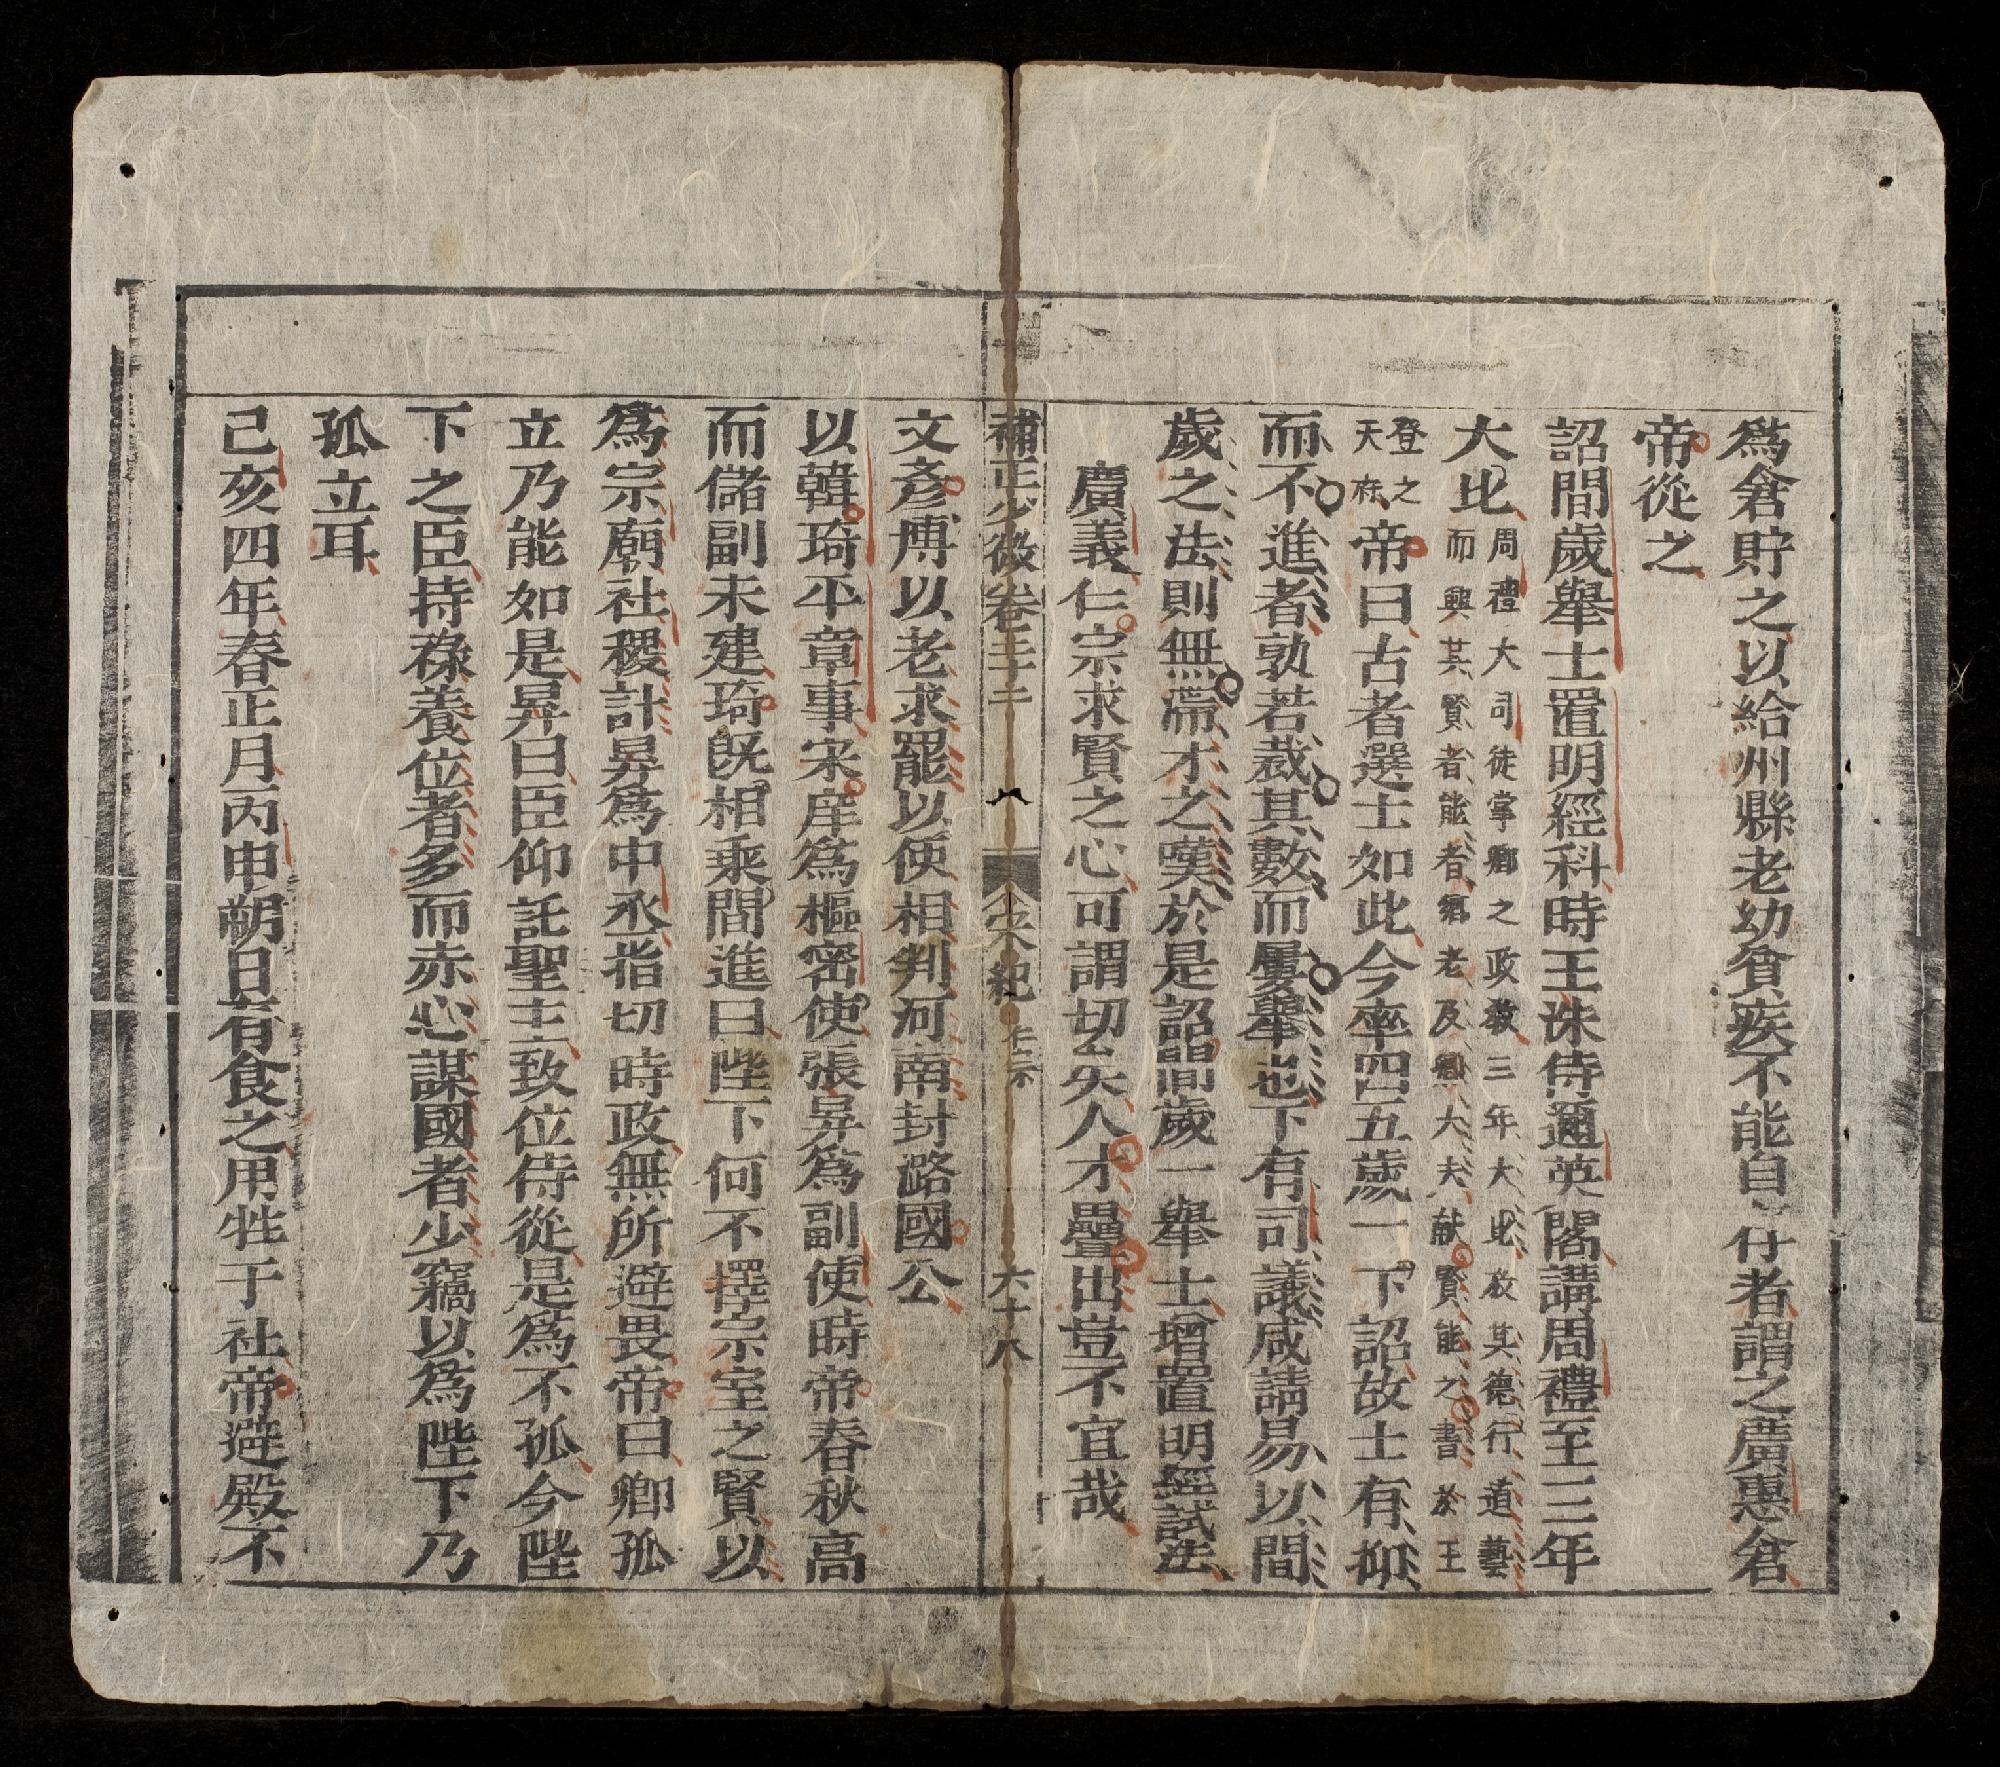 爲倉貯之以給州縣老幼貧疾不能自存者謂之廣惠倉
帝從之
詔間歲舉士置明經科時王洙侍邇英閣講周禮至三年
大比周禮大司徒掌鄉之政教三年大比攷其德行道藝
而興其賢者能者鄉老及鄉大夫献賢能之書於王
登之
天府帝曰古者選士如此今率四五歲一下詔故士有抑
而不進者孰若裁其數而屢舉也下有司議咸請易以間
歲之法則無滯才之嘆於是詔間歲一舉士增置明經試法
廣義仁宗求賢之心可謂切矣人才疊出豈不宜哉
補正少微卷三十二 宋紀 仁宗 六十八
文彥博以老求罷以使相判河南封潞國公
以韓琦平章事宋庠爲樞密使張昇爲副使時帝春秋高
而儲副未建琦旣相乘間進曰陛下何不擇宗室之賢以
爲宗廟社稷計昇爲中丞指切時政無所避畏帝曰卿孤
立乃能如是昇曰臣仰託聖主致位侍從是爲不孤今陛
下之臣持祿養位者多而赤心謀國者少竊以爲陛下乃
孤立耳
己亥四年春正月丙申朔日有食之用牲于社帝避殿不